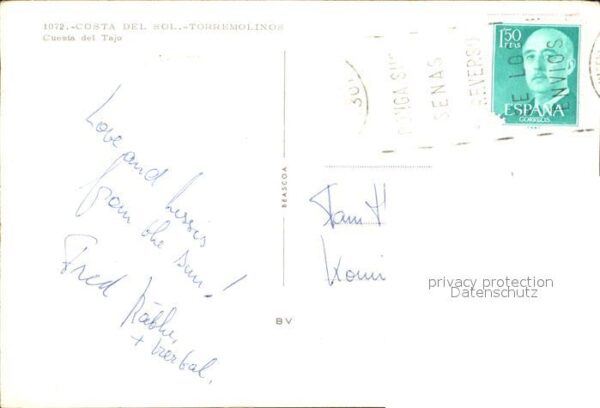 1072.-COSTA DEL SOL.-TORREMOLINOS
Cuesta del Tajo
1'50
PTAS
ESPAÑA
CORREOS
PONGA SUS
SEÑAS
REVERSO
DE LO
ENVIOS
Love and kisses
from the sun!
Fried Käthe,
+
BEASCOA
Fam
BV
privacy protection
Datenschutz